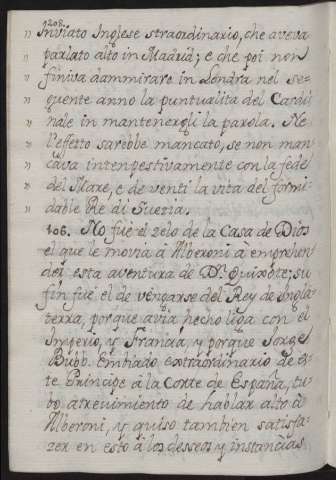 1208.
„ Inviato Inglese straordinario, che aveva
„ parlato alto in Madrid; e che poi non
„ finiva d'ammirare in Londra nel se-
„ guente anno la puntualita del Cardi-
„ nale in mantenergli la parola. Ne
„ l'effetto sarebbe mancato, se non man-
„ cava intenpestivamente con la fede
„ del Mare, e de venti la vita del formi-
„ dable Re di Suezia.
106. No fue el zelo de la Casa de Dios
el que le movia â Alberoni â emprehen-
der esta aventura de Dn. Quixote; su
fin fue el de vengarse del Rey de Ingla-
terra, porque avia hecho liga con el
Imperio, y Francia, y porque Jorge
Bubb. Embiado extraordinario de es-
te Principe â la Corte de España, tu-
bo atrevimiento de hablar alto â
Alberoni, y quiso tambien satisfa-
zer en esto â los desseos y instancias